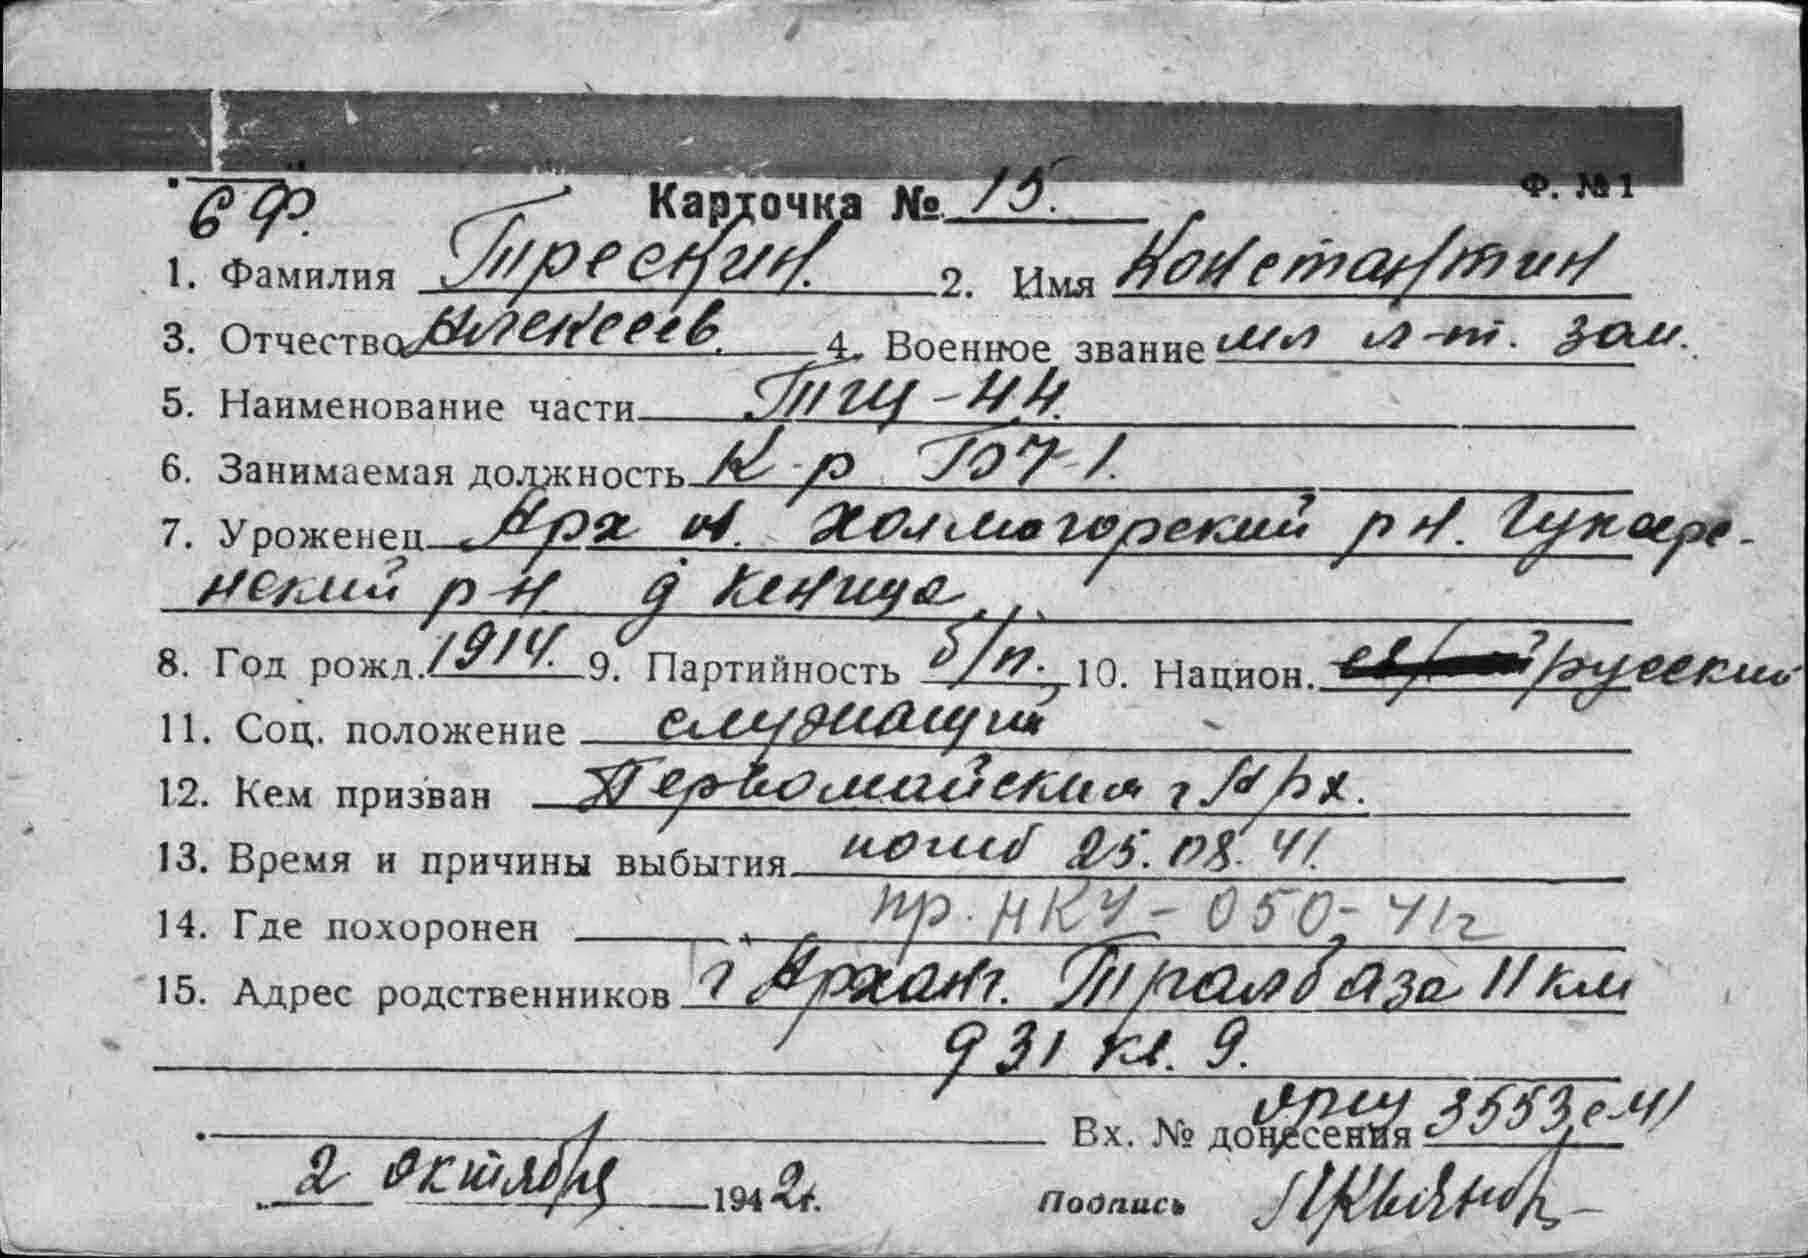 Ф. №1
СФ. Карточка № 15.
1. Фамилия Трескин. 2. Имя Константин
3. Отчество Алексеев. 4. Военное звание мл л-т. зап.
5. Наименование части ТЩ-44.
6. Занимаемая должность К-р БЧ-1.
7. Уроженец Арх об. Холмогорский р н.
нский р-н д Кеница
8. Год рожд. 1914. 9. Партийность б/п. 10. Национ. русский
11. Соц. положение служащий
12. Кем призван Первомайским г Арх.
13. Время и причины выбытия погиб 25.08.41.
14. Где похоронен пр. НКУ-050-41г
15. Адрес родственников г Арханг. Тралбаза 11 км
д 31 кв. 9.
Вх. № донесения 3553с-41
2 октября 1942г. Подпись